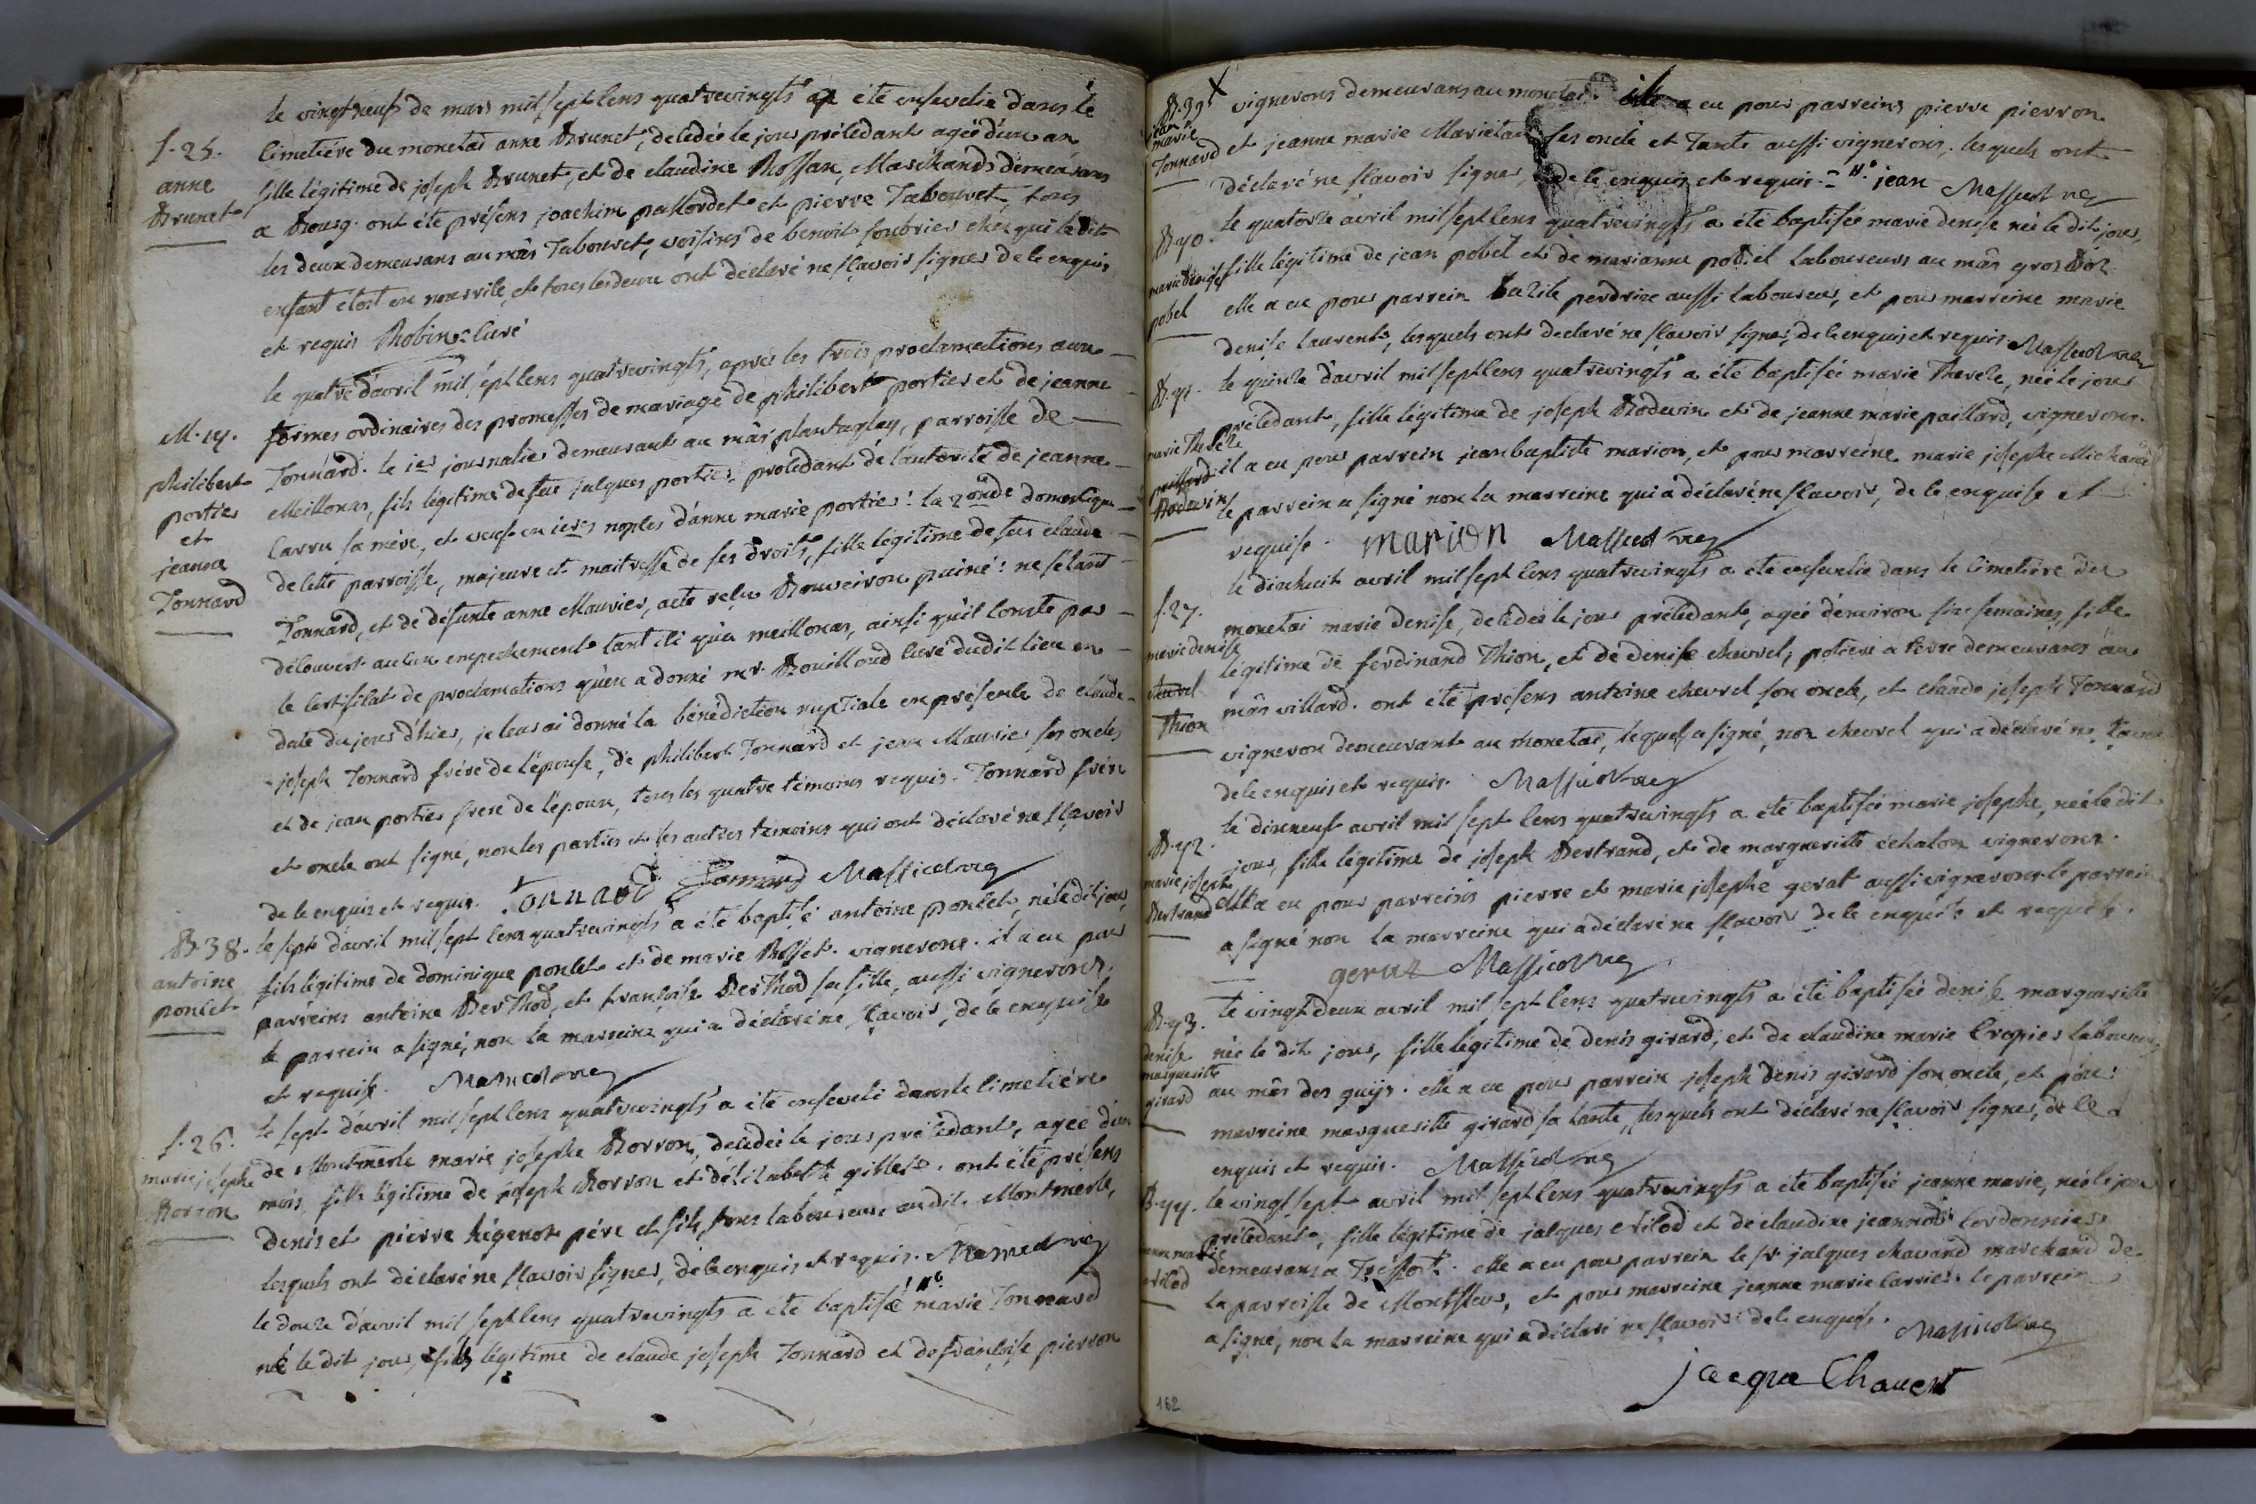 le vingt neuf de mars mil sept cens quatrevingts a été ensevelie dans le
S. 25.
anne
Brunet
cimetiére du monetai anne Brunet, decedée le jour précédant agée d'un an
fille légitime de joseph Brunet, et de claudine Rossan, Marchands demeurans
a Bourg. ont été présens joachim pallordet et pierre Tabouret, tous
les deux demeurans au mâs Tabouret, voisins de benoit soubrier chez qui le dit
enfant étoit en nourrice, et tous les deux ont déclaré ne sçavoir signer de ce enquis
et requis Robin curé
le quatre d'avril mil sept cens quatrevingts, aprés les trois proclamations aux
M. 14.
philibert
portier
et
jeanne
Tonnard
formes ordinaires des promesses de mariage de philibert portier et de jeanne
Tonnard. le 1er journalier demeurant au mâs plantaglay, parroisse de
Meillonas, fils légitime de feu jacques portier, procedant de l'autorité de jeanne
Carru sa mére, et veuf en 1eres noples d'anne marie portier: la 2onde domestique
de cette parroisse, majeure et maitresse de ses droits, fille légitime de feu claude
Tonnard, et de défunte anne Mauvier, acte reçu Bouveiron puiné: ne s'étant
découvert aucun empechement tant ici qu'a meillonas, ainsi qu'il conste par
le certificat de proclamations qu'en a donné mr. Bouilloud curé dudit lieu en
date du jour d'hier, je leur ai donné la bénédiction nuptiale en présence de claude
joseph Tonnard frére de l'épouse, de philibert Tonnard et jean Mauvier ses oncles
et de jean portier frere de l'époux, tous les quatre témoins requis. Tonnard frére
et oncle ont signé, non les parties et les autres temoins qui ont déclaré ne sçavoir
de ce enquis et requis. Tonnard Tonnard Massicod vic
B. 38.
antoine
poncet
le sept d'avril mil sept cens quatrevingts a été baptisé antoine poncet, né le dit jour,
fils légitime de dominique poncet et de marie Rosset. vignerons. il a eu pour
parreins antoine Berthod, et françoise Berthod sa fille, aussi vignerons.
le parrein a signé, non la marreine qui a déclaré ne sçavoir, de ce enquise
et requise. Massicod vic
S. 26.
marie josephe
Borron
le sept d'avril mil sept cens quatrevingts a été enseveli dans le cimetiére
de Montmerle marie josephe Borron, decedée le jour précédant, agée d'un
mois, fille légitime de joseph Borron et d'élisabeth gillet. ont été présens
denis et pierre hégenot pére et fils, tous laboureurs audit Montmerle,
lesquels ont déclaré ne sçavoir signer, de ce enquis et requis. Massicod vic
le douze d'avril mil sept cens quatrevingts a été baptisé marie Tonnard
né le dit jour, fils légitime de claude joseph Tonnard et de françoise pierron
B. 39.
jean
marie
Tonnard
vignerons demeurans au monetai. il a eu pour parreins pierre pierron
et jeanne marie Marietan ses oncle et Tante aussi vignerons, lesquels ont
déclaré ne sçavoir signer, de ce enquis et requis. jean Massicod vic
B. 40.
marie denise
pobel
le quatorze avril mil sept cens quatrevingts a été baptisée marie denise née le dit jour,
fille légitime de jean pobel et de marianne pobel laboureurs au mâs gros Boz
elle a eu pour parrein Bazile perdrix aussi laboureur, et pour marreine marie
denise laurent, lesquels ont declaré ne sçavoir signer, de ce enquis et requis Massicod vic
B. 41.
marie Thereze
paillard
Bodevin
le quinze d'avril mil sept cens quatrevingts a été baptisée marie Thereze, née le jour
précédant, fille légitime de joseph Bodevin et de jeanne marie paillard, vignerons.
il a eu pour parrein jean baptiste marion, et pour marreine marie josephe Michaud
le parrein a signé non la marreine qui a déclaré ne sçavoir, de ce enquise et
requise. marion Massicod vic
S. 27.
marie denise
chevrel
Thion
le dixhuit avril mil sept cens quatrevingts a été ensevelie dans le cimetiére du
monetai marie denise, decedée le jour précédant, agée d'environ six semaines, fille
légitime de ferdinand Thion, et de denise chevrel, potiers a terre demeurans au
mâs villard. ont été présens antoine chevrel son oncle, et claude joseph Tonnard
vigneron demeurant au monetai, lequel a signé, non chevrel qui a déclaré ne sçavoir
de ce enquis et requis. Massicod vic
B. 42.
marie josephe
Bertrand
le dixneuf avril mil sept cens quatrevingts a été baptisée marie josephe, née le dit
jour, fille légitime de joseph Bertrand, et de margueritte échalon vignerons.
elle a eu pour parreins pierre et marie josephe gerat aussi vignerons. le parrein
a signé non la marreine qui a déclaré ne sçavoir de ce enquise et requise.
Massicod vic
B. 43.
denise
margueritte
girard
le vingt deux avril mil sept cens quatrevingts a été baptisée denise margueritte
née le dit jour, fille légitime de denis girard, et de claudine marie Cropier laboureurs
au mâs des guijs. elle a eu pour parrein joseph denis girard son oncle, et pour
marreine margueritte girard sa tante, lesquels ont déclaré ne sçavoir signer, de ce
enquis et requis. Massicod vic
B. 44.
jeanne marie
crilod
le vingt sept avril mil sept cens quatrevingts a été baptisée jeanne marie, née le jour
précédant, fille légitime de jacques crilod et de claudine jeannot cordonniers
demeurans a Treffort. elle a eu pour parrein le sr. jacques chavand marchand de
la parroisse de Montfleur, et pour marreine jeanne marie carrier. le parrein
a signé, non la marreine qui a déclaré ne sçavoir de ce enquise. Massicod vic
162